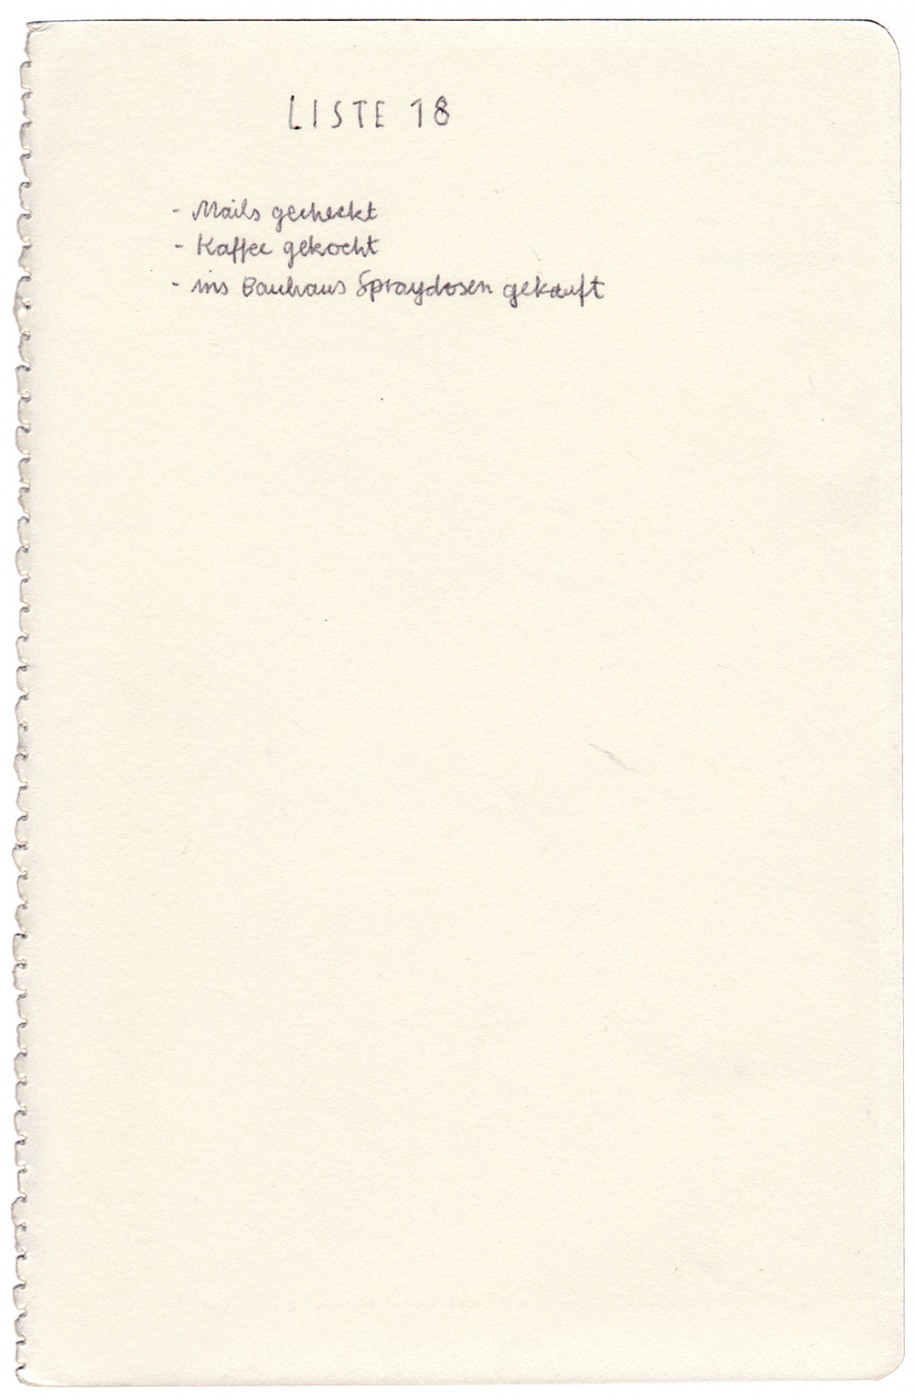 LISTE 18
- Mails gecheckt
- Kaffee gekocht
- ins Bauhaus Spraydosen gekauft